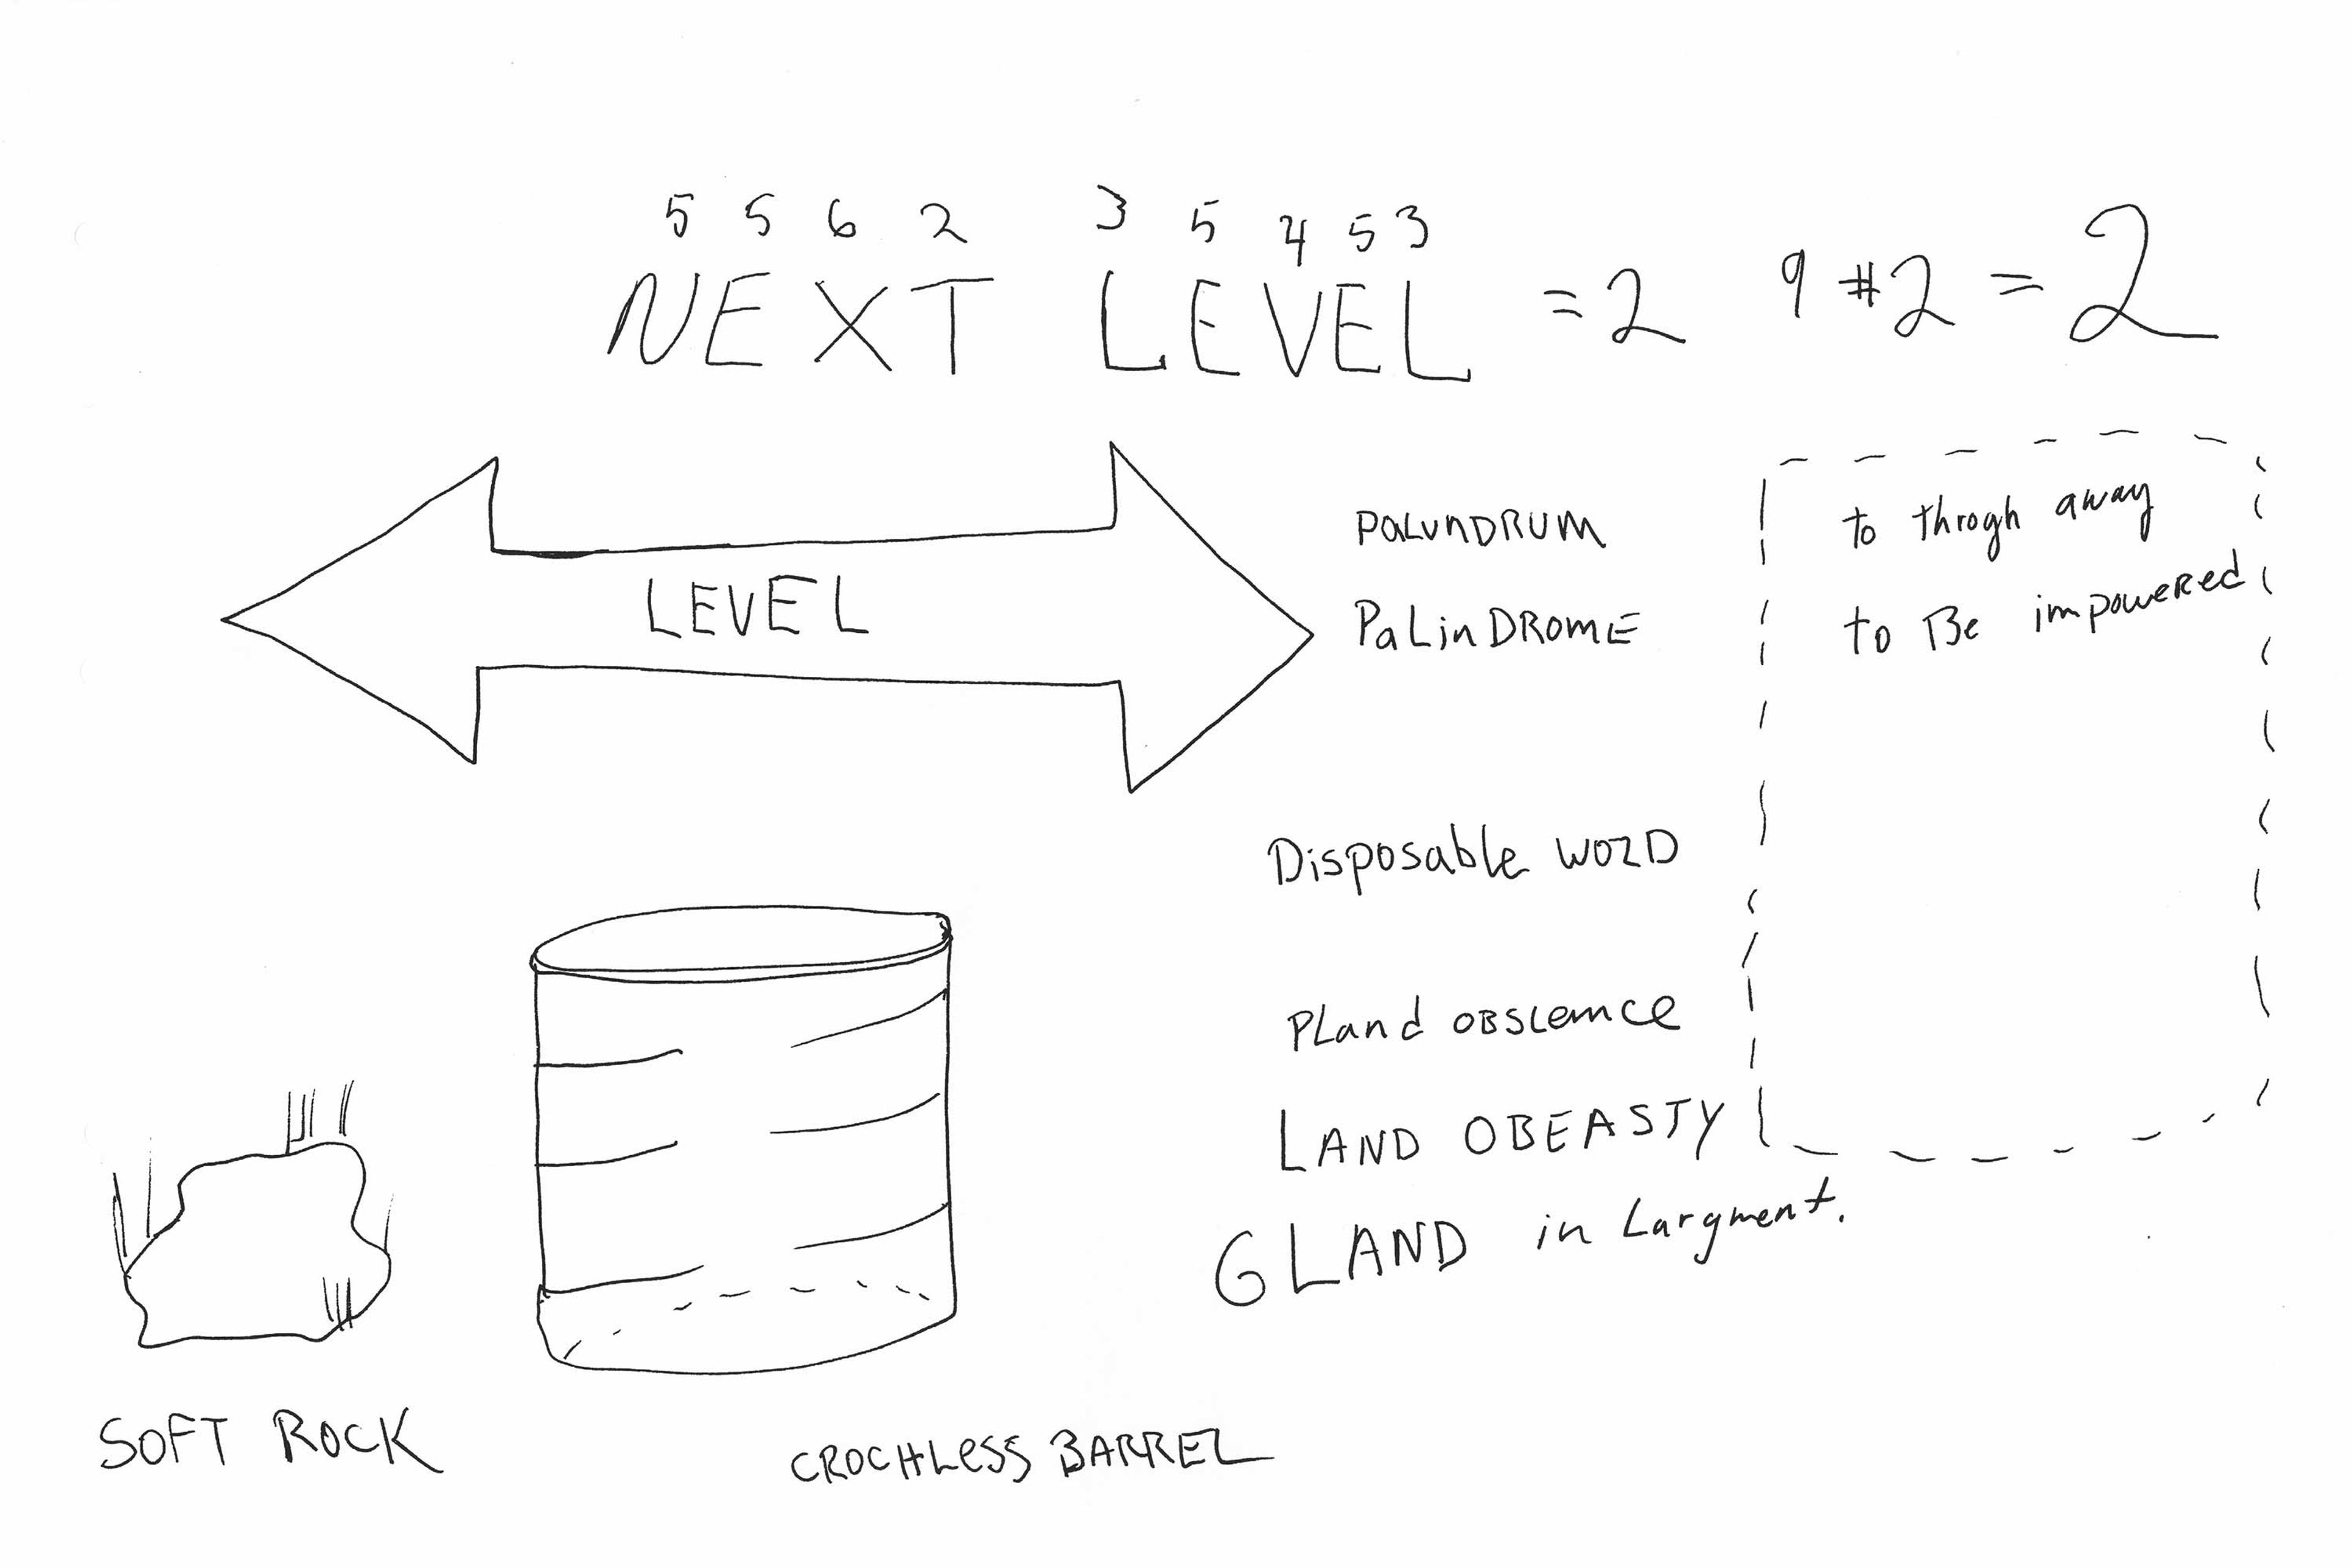 5 5 6 2 3 5 4 5 3
NEXT LEVEL = 2 9 #2 = 2
LEVEL
PALUNDRUM
PaLinDROME
to throgh away
to Be impowered
Disposable WORD
PLand OBSLemce
LAND OBEASTY
GLAND in Largment.
SOFT ROCK
CROCHLESS BARREL